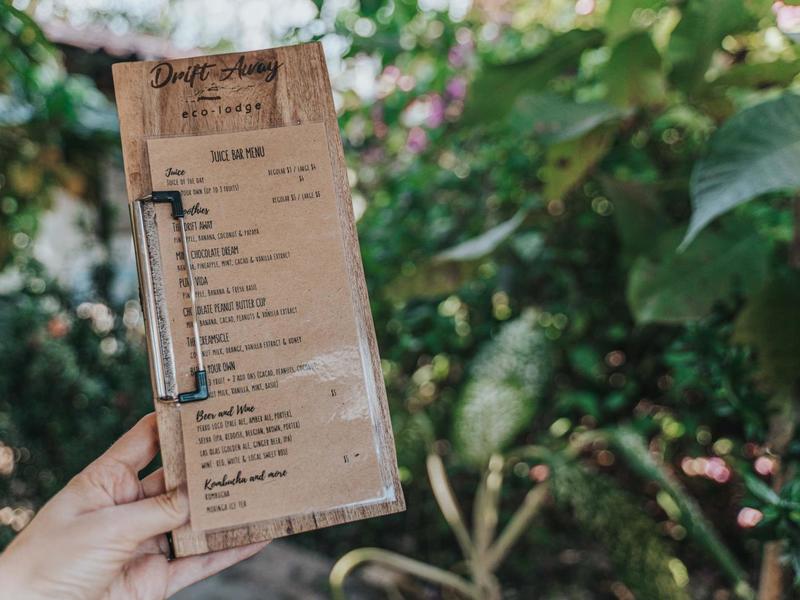 Drift Away
eco-lodge
JUICE BAR MENU
Juice REGULAR $3 / LARGE $4
JUICE OF THE DAY $4
YOUR OWN (UP TO 3 FRUITS)
REGULAR $5 / LARGE $6
DRIFT AWAY
BANANA, COCONUT & PAPAYA
CHOCOLATE DREAM
PINEAPPLE, MINT, CACAO & VANILLA EXTRACT
VIDA
BANANA & FRESH BASIL
CHOCOLATE PEANUT BUTTER CUP
BANANA, CACAO, PEANUTS & VANILLA EXTRACT
CREAMSICLE
MILK, ORANGE, VANILLA EXTRACT & HONEY
YOUR OWN
FRUIT + 2 ADD ONS (CACAO, PEANUTS,
MILK, VANILLA, MINT, BASIL)
Beer and Wine $5
PERRO LOCO (PALE ALE, AMBER ALE, PORTER)
SELVA (IPA, REDDISH, BELGIAN, BROWN, PORTER)
LAS OLAS (GOLDEN ALE, GINGER BEER, IPA)
WINE: RED, WHITE & LOCAL SWEET RED
Kombucha and more $5
KOMBUCHA
MORINGA ICE TEA